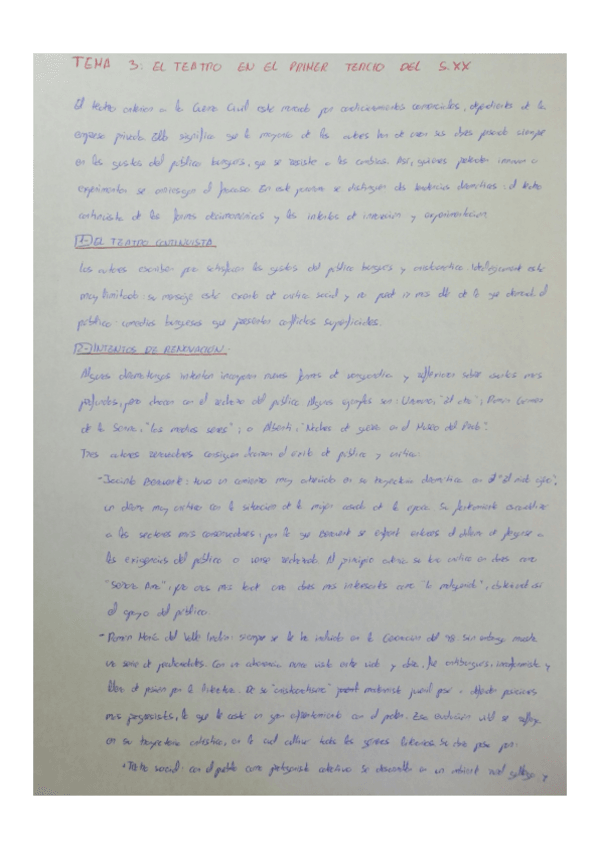 TEMA 3: EL TEATRO EN EL PRIMER TERCIO DEL S.XX
El teatro anterior a la Guerra Civil está marcado por condicionamientos comerciales, dependientes de la
empresa privada. Ello significa que la mayoría de los autores han de crear sus obras pensando siempre
en los gustos del público burgués, que se resiste a los cambios. Así, quienes pretenden innovar o
experimentar se arriesgan al fracaso. En este panorama se distinguen dos tendencias dramáticas: el teatro
continuista de las formas decimonónicas y los intentos de innovación y experimentación.
1- EL TEATRO CONTINUISTA
Los autores escriben para satisfacer los gustos del público burgués y aristocrático. Ideológicamente está
muy limitado: su mensaje está exento de crítica social y no puede ir más allá de lo que demanda el
público: comedias burguesas que presentan conflictos superficiales.
2- INTENTOS DE RENOVACIÓN.
Algunos dramaturgos intentan incorporar nuevas formas de vanguardia y reflexiones sobre asuntos más
profundos, pero chocan con el rechazo del público. Algunos ejemplos son: Unamuno, "El otro"; Ramón Gómez
de la Serna, "Los medios seres"; o Alberti, "Noches de guerra en el Museo del Prado".
Tres autores renovadores consiguen el éxito de público y crítica:
- Jacinto Benavente: tuvo un comienzo muy en su trayectoria dramática con el "El nido ajeno",
un drama muy crítico con la situación de la mujer casada de la época. Su
a los sectores más conservadores, por lo que Benavente se enfrentó entonces al dilema de plegarse a
las exigencias del público o verse rechazado. Al principio su crítica en obras como
"Señora Ama", pero más tarde creó obras más interesantes como "La malquerida", obteniendo así
el apoyo del público.
- Ramón María del Valle Inclán: siempre se le ha incluido en la Generación del 98. Sin embargo, muestra
una serie de peculiaridades. Con una coherencia entre vida y obra, fue antiburgués, inconformista y
lleno de pasión por la literatura. De su juvenil pasó a defender posiciones
más progresistas, lo que le costó un gran enfrentamiento con el poder. Esa evolución vital se refleja
en su trayectoria, en la cual cultivó todos los géneros literarios. Su obra pasa por:
• Teatro social: con el pueblo como protagonista colectivo se desarrolla en un rural gallego y